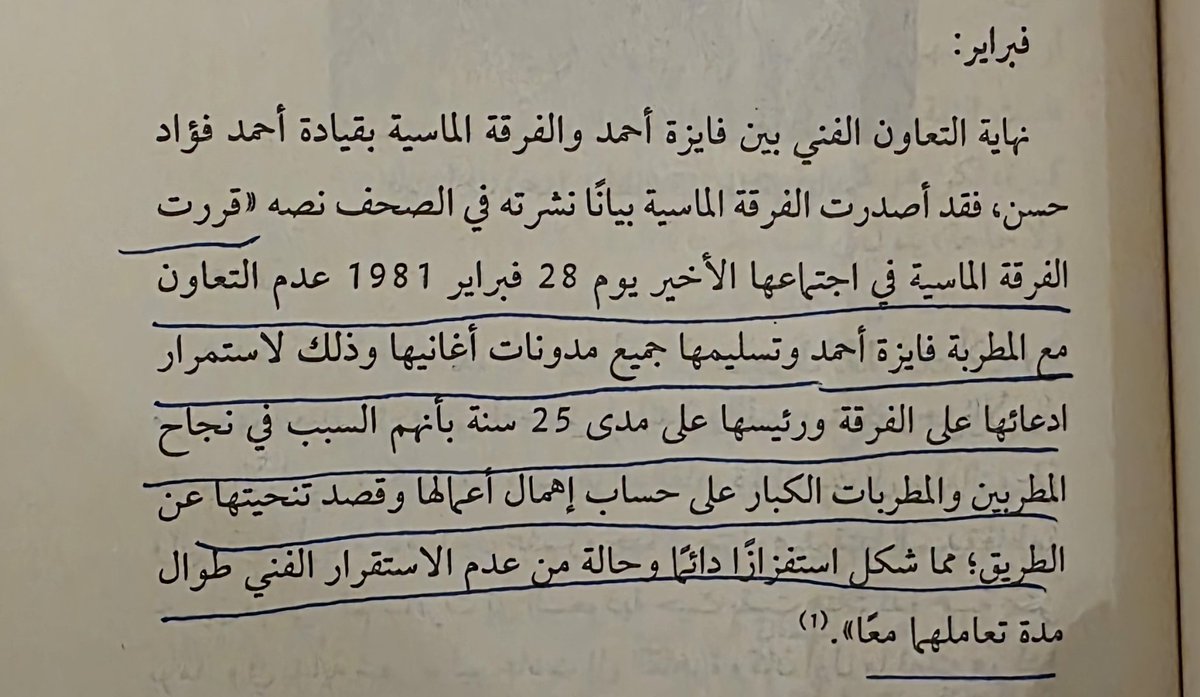 فبراير:
نهاية التعاون الفني بين فايزة أحمد والفرقة الماسية بقيادة أحمد فؤاد
حسن، فقد أصدرت الفرقة الماسية بيانًا نشرته في الصحف نصه «قررت
الفرقة الماسية في اجتماعها الأخير يوم 28 فبراير 1981 عدم التعاون
مع المطربة فايزة أحمد وتسليمها جميع مدونات أغانيها وذلك لاستمرار
ادعائها على الفرقة ورئيسها على مدى 25 سنة بأنهم السبب في نجاح
المطربين والمطربات الكبار على حساب إهمال أعمالها وقصد تنحيتها عن
الطريق؛ مما شكل استفزازًا دائمًا وحالة من عدم الاستقرار الفني طوال
مدة تعاملهما معًا».(1)